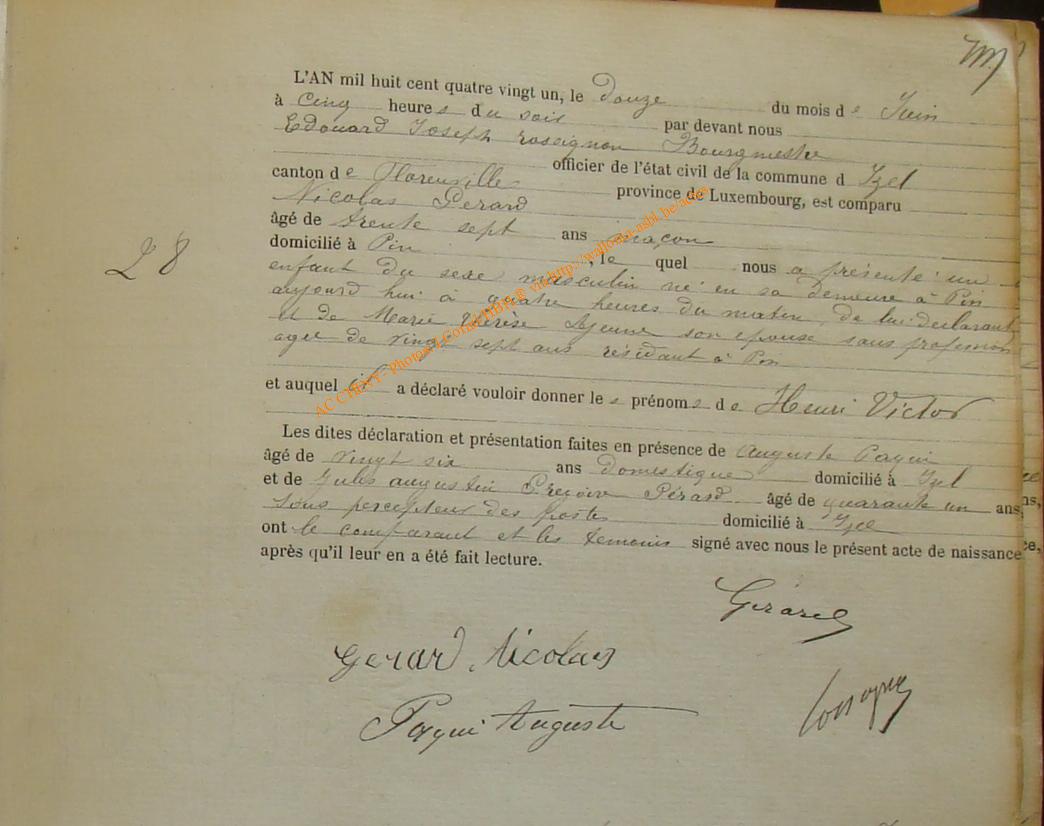 L'AN mil huit cent quatre vingt un, le Douze du mois de Juin
à cinq heures du soir par devant nous
Edouard Joseph rossignon Bourgmestre
officier de l'état civil de la commune d Izel
canton de Florenville province de Luxembourg, est comparu
Nicolas Gerard
âgé de trente sept ans maçon
domicilié à Pin , le quel nous a présenté un
28
enfant du sexe masculin né en sa demeure à Pin
aujourd hui à quatre heures du matin, de lui déclarant
et de Marie Thérèse Lejeune son épouse sans profession
agée de vingt sept ans résidant à Pin
et auquel il a déclaré vouloir donner les prénoms de Henri Victor
Les dites déclaration et présentation faites en présence de Auguste Paqui
âgé de vingt six ans domestique domicilié à Izel
et de Jules augustin Gérard âgé de quarante un ans,
sous percepteur des postes domicilié à Izel
ont le comparant et les témoins signé avec nous le présent acte de naissance
après qu'il leur en a été fait lecture.
Gérard
Gerard Nicolas
Paqui Auguste
AC CHINY - Photos © via http://wallonia-asbl.be/actes